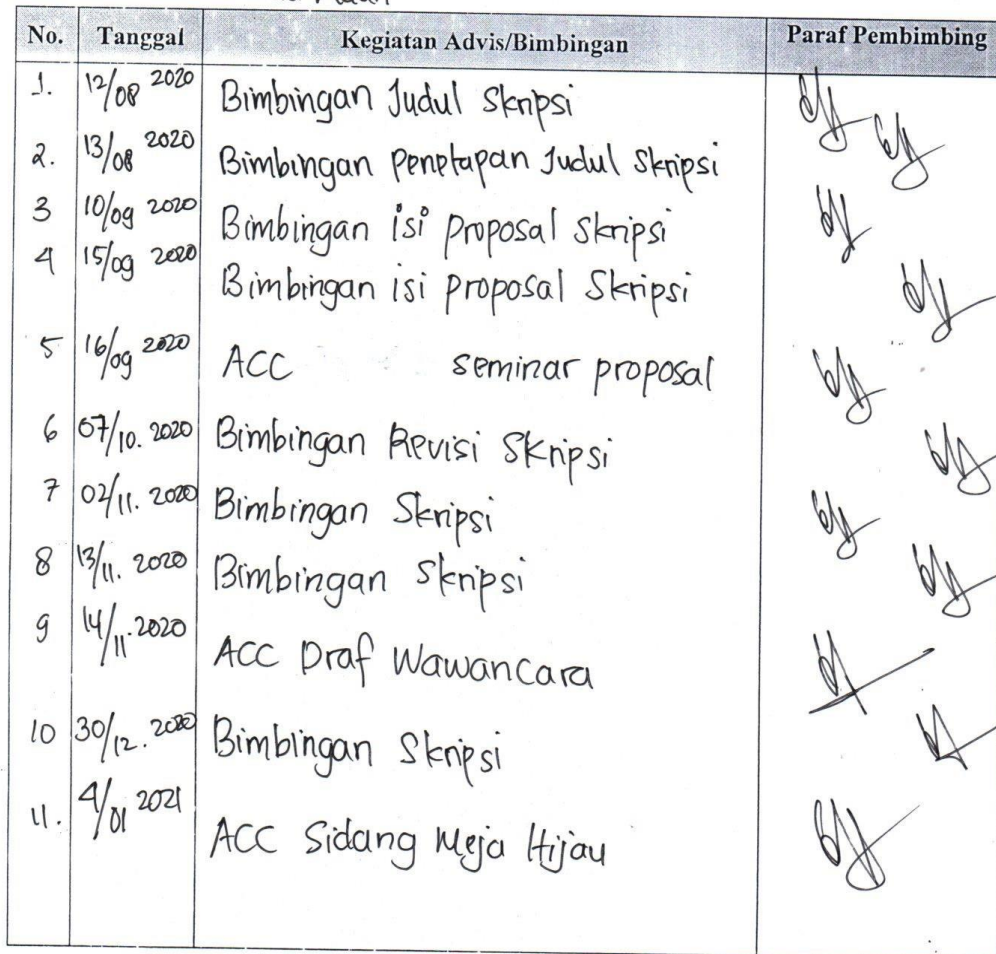 No. Tanggal Kegiatan Advis/Bimbingan Paraf Pembimbing
1. 12/08 2020 Bimbingan Judul Skripsi
2. 13/08 2020 Bimbingan Penetapan Judul Skripsi
3 10/09 2020 Bimbingan isi proposal Skripsi
4 15/09 2020 Bimbingan isi proposal Skripsi
5 16/09 2020 ACC seminar proposal
6 07/10. 2020 Bimbingan Revisi Skripsi
7 02/11. 2020 Bimbingan Skripsi
8 13/11. 2020 Bimbingan Skripsi
9 14/11. 2020 ACC Draf Wawancara
10 30/12. 2020 Bimbingan Skripsi
11. 4/01 2021 ACC Sidang Meja Hijau